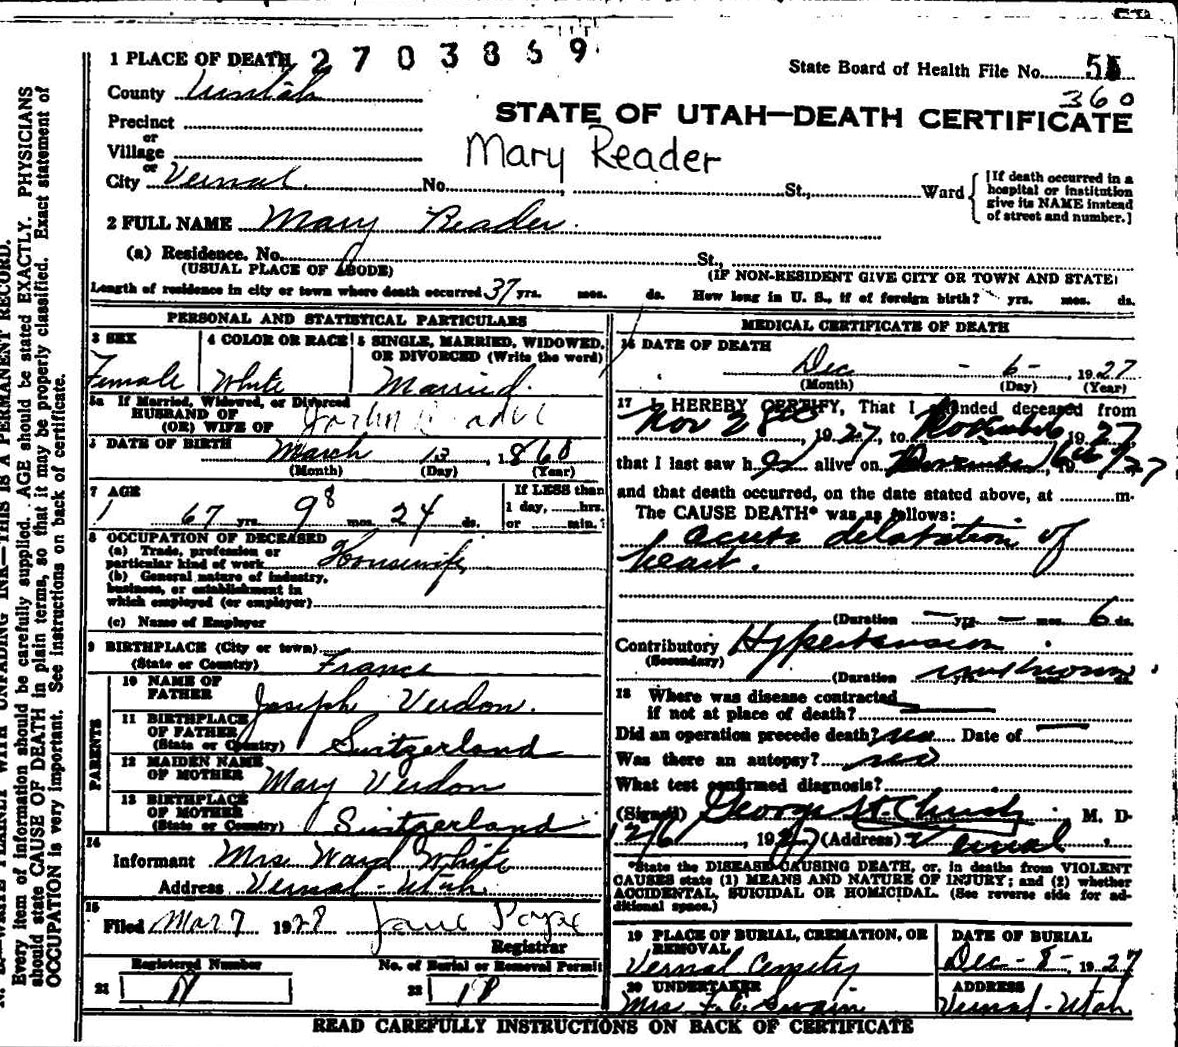 1 PLACE OF DEATH 2703869
State Board of Health File No. 51
County Uintah
360
STATE OF UTAH—DEATH CERTIFICATE
Precinct
or
Village
Mary Reader
or
City Vernal No. St., Ward
[If death occurred in a
hospital or institution
give its NAME instead
of street and number.]
2 FULL NAME Mary Reader.
(a) Residence. No. St.,
(USUAL PLACE OF ABODE) (IF NON-RESIDENT GIVE CITY OR TOWN AND STATE)
Length of residence in city or town where death occurred 37 yrs. mos. ds. How long in U. S., if of foreign birth? yrs. mos. ds.
PERSONAL AND STATISTICAL PARTICULARS
3 SEX 4 COLOR OR RACE 5 SINGLE, MARRIED, WIDOWED,
OR DIVORCED (Write the word)
Female White Married.
5a If Married, Widowed, or Divorced
HUSBAND OF
(OR) WIFE OF
6 DATE OF BIRTH March 12 1860
(Month) (Day) (Year)
7 AGE If LESS than
1 day, hrs.
or min.?
67 yrs. 98 mos. 24 ds.
8 OCCUPATION OF DECEASED
(a) Trade, profession or
particular kind of work Housewife
(b) General nature of industry,
business, or establishment in
which employed (or employer)
(c) Name of Employer
9 BIRTHPLACE (City or town)
(State or Country) France
PARENTS
10 NAME OF
FATHER Joseph Verdon.
11 BIRTHPLACE
OF FATHER
(State or Country) Switzerland
12 MAIDEN NAME
OF MOTHER Mary Verdon
13 BIRTHPLACE
OF MOTHER
(State or Country) Switzerland
14
Informant Mrs Ward White
Address Vernal-Utah.
15
Filed Mar 7 1928
Registrar
Registered Number No. of Burial or Removal Permit
21 22
MEDICAL CERTIFICATE OF DEATH
16 DATE OF DEATH
Dec - 6 - 1927
(Month) (Day) (Year)
17 I HEREBY CERTIFY, That I attended deceased from
Nov 28, 1927, to 1927
that I last saw her alive on
and that death occurred, on the date stated above, at m.
The CAUSE DEATH* was as follows:
acute delatation of
heart.
(Duration — yrs. — mos. 6 ds.
Contributory Hypertension
(Secondary)
(Duration unknown
18 Where was disease contracted
if not at place of death?
Did an operation precede death? no Date of —
Was there an autopsy? no
What test confirmed diagnosis?
(Signed) George M. D.
12/6, 1927 (Address) Vernal
*State the DISEASE CAUSING DEATH, or, in deaths from VIOLENT
CAUSES state (1) MEANS AND NATURE OF INJURY; and (2) whether
ACCIDENTAL, SUICIDAL OR HOMICIDAL. (See reverse side for ad-
ditional space.)
19 PLACE OF BURIAL, CREMATION, OR
REMOVAL
Vernal Cemetry
DATE OF BURIAL
Dec - 8 - 1927
20 UNDERTAKER
Mrs F. E. Swain
ADDRESS
Vernal-Utah
READ CAREFULLY INSTRUCTIONS ON BACK OF CERTIFICATE
WRITE PLAINLY WITH UNFADING INK—THIS IS A PERMANENT RECORD.
Every item of information should be carefully supplied. AGE should be stated EXACTLY. PHYSICIANS
should state CAUSE OF DEATH in plain terms, so that it may be properly classified. Exact statement of
OCCUPATION is very important. See instructions on back of certificate.